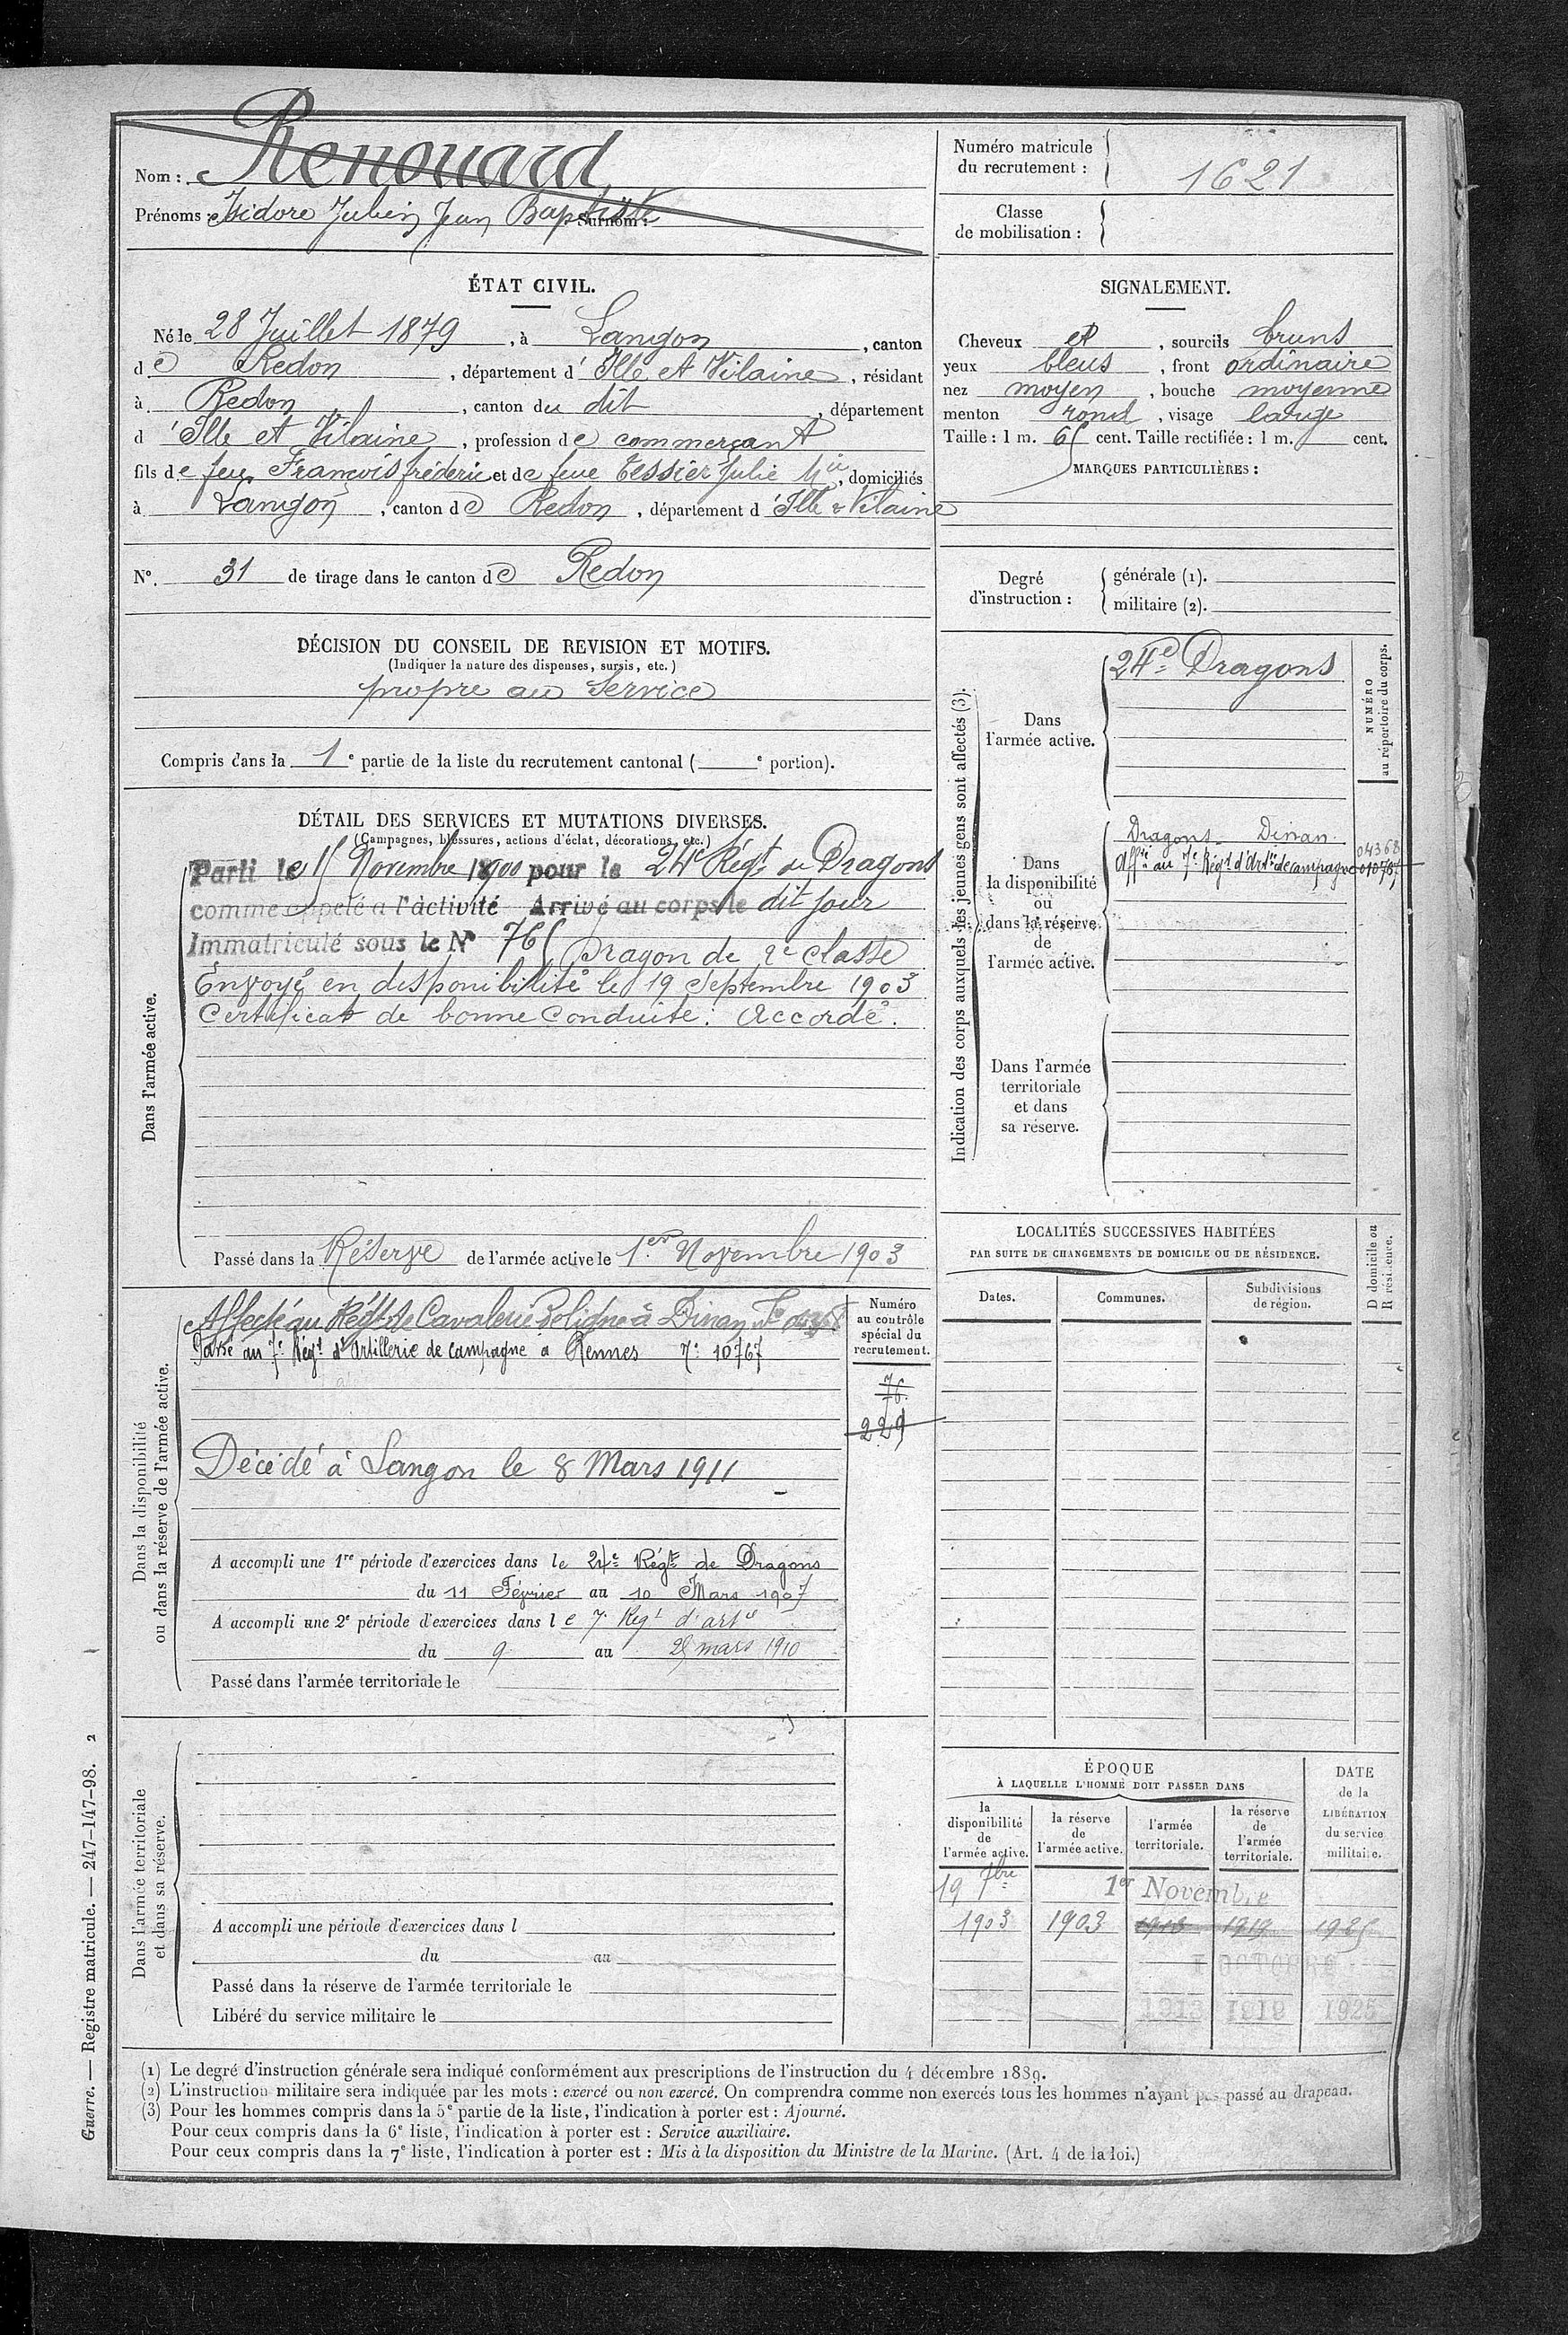 Nom : Renouard
Prénoms : Isidore Julien Jean Baptiste Surnom :
Numéro matricule du recrutement : 1621
Classe de mobilisation :
ÉTAT CIVIL.
Né le 28 Juillet 1879, à Langon, canton
de Redon, département d'Ille et Vilaine, résidant
à Redon, canton du dit, département
d'Ille et Vilaine, profession de commerçant
fils de feu François frédéric et de feue Tessier Julie Mie, domiciliés
à Langon, canton de Redon, département d'Ille & Vilaine
N°. 31 de tirage dans le canton de Redon
SIGNALEMENT.
Cheveux et, sourcils bruns
yeux bleus, front ordinaire
nez moyen, bouche moyenne
menton rond, visage large
Taille : 1 m. 65 cent. Taille rectifiée : 1 m. cent.
MARQUES PARTICULIÈRES :
Degré d'instruction : générale (1).
militaire (2).
DÉCISION DU CONSEIL DE REVISION ET MOTIFS.
(Indiquer la nature des dispenses, sursis, etc.)
propre au Service
Compris dans la 1e partie de la liste du recrutement cantonal ( e portion).
DÉTAIL DES SERVICES ET MUTATIONS DIVERSES.
(Campagnes, blessures, actions d'éclat, décorations, etc.)
Dans l'armée active.
Parti le 15 Novembre 1900 pour le 24e Régt de Dragons
comme appelé à l'activité Arrivé au corps le dit jour
Immatriculé sous le N° 765 Dragon de 2e classe
Envoyé en disponibilité le 19 Septembre 1903
Certificat de bonne Conduite : Accordé.
Passé dans la Réserve de l'armée active le 1er Novembre 1903
Indication des corps auxquels les jeunes gens sont affectés (3).
NUMÉRO au répertoire du corps.
Dans l'armée active.
24e Dragons
Dans la disponibilité ou dans la réserve de l'armée active.
Dragons Dinan 04368
Affté au 7e Régt d'Artie de campagne 010767
Dans l'armée territoriale et dans sa réserve.
Dans la disponibilité ou dans la réserve de l'armée active.
Numéro au contrôle spécial du recrutement.
Affecté au Régt de Cavalerie de ligne à Dinan
Passé au 7e Régt d'Artillerie de campagne à Rennes N: 10767
76
229
Décédé à Langon le 8 Mars 1911
A accompli une 1re période d'exercices dans le 24e Régt de Dragons
du 11 Février au 10 Mars 1907
A accompli une 2e période d'exercices dans le 7e Regt d'artie
du 9 au mars 1910
Passé dans l'armée territoriale le
LOCALITÉS SUCCESSIVES HABITÉES
PAR SUITE DE CHANGEMENTS DE DOMICILE OU DE RÉSIDENCE.
Dates. Communes. Subdivisions de région. D domicile ou R résidence.
Dans l'armée territoriale et dans sa réserve.
A accompli une période d'exercices dans l
du au
Passé dans la réserve de l'armée territoriale le
Libéré du service militaire le
ÉPOQUE
À LAQUELLE L'HOMME DOIT PASSER DANS
la disponibilité de l'armée active. la réserve de l'armée active. l'armée territoriale. la réserve de l'armée territoriale. DATE de la LIBÉRATION du service militaire.
19 7bre 1er Novembre
1903 1903 1913 1919 1925
OCTOBRE
1913 1919 1925
(1) Le degré d'instruction générale sera indiqué conformément aux prescriptions de l'instruction du 4 décembre 1889.
(2) L'instruction militaire sera indiquée par les mots : exercé ou non exercé. On comprendra comme non exercés tous les hommes n'ayant pas passé au drapeau.
(3) Pour les hommes compris dans la 5e partie de la liste, l'indication à porter est : Ajourné.
Pour ceux compris dans la 6e liste, l'indication à porter est : Service auxiliaire.
Pour ceux compris dans la 7e liste, l'indication à porter est : Mis à la disposition du Ministre de la Marine. (Art. 4 de la loi.)
Guerre. — Registre matricule. — 247-147-98. 2